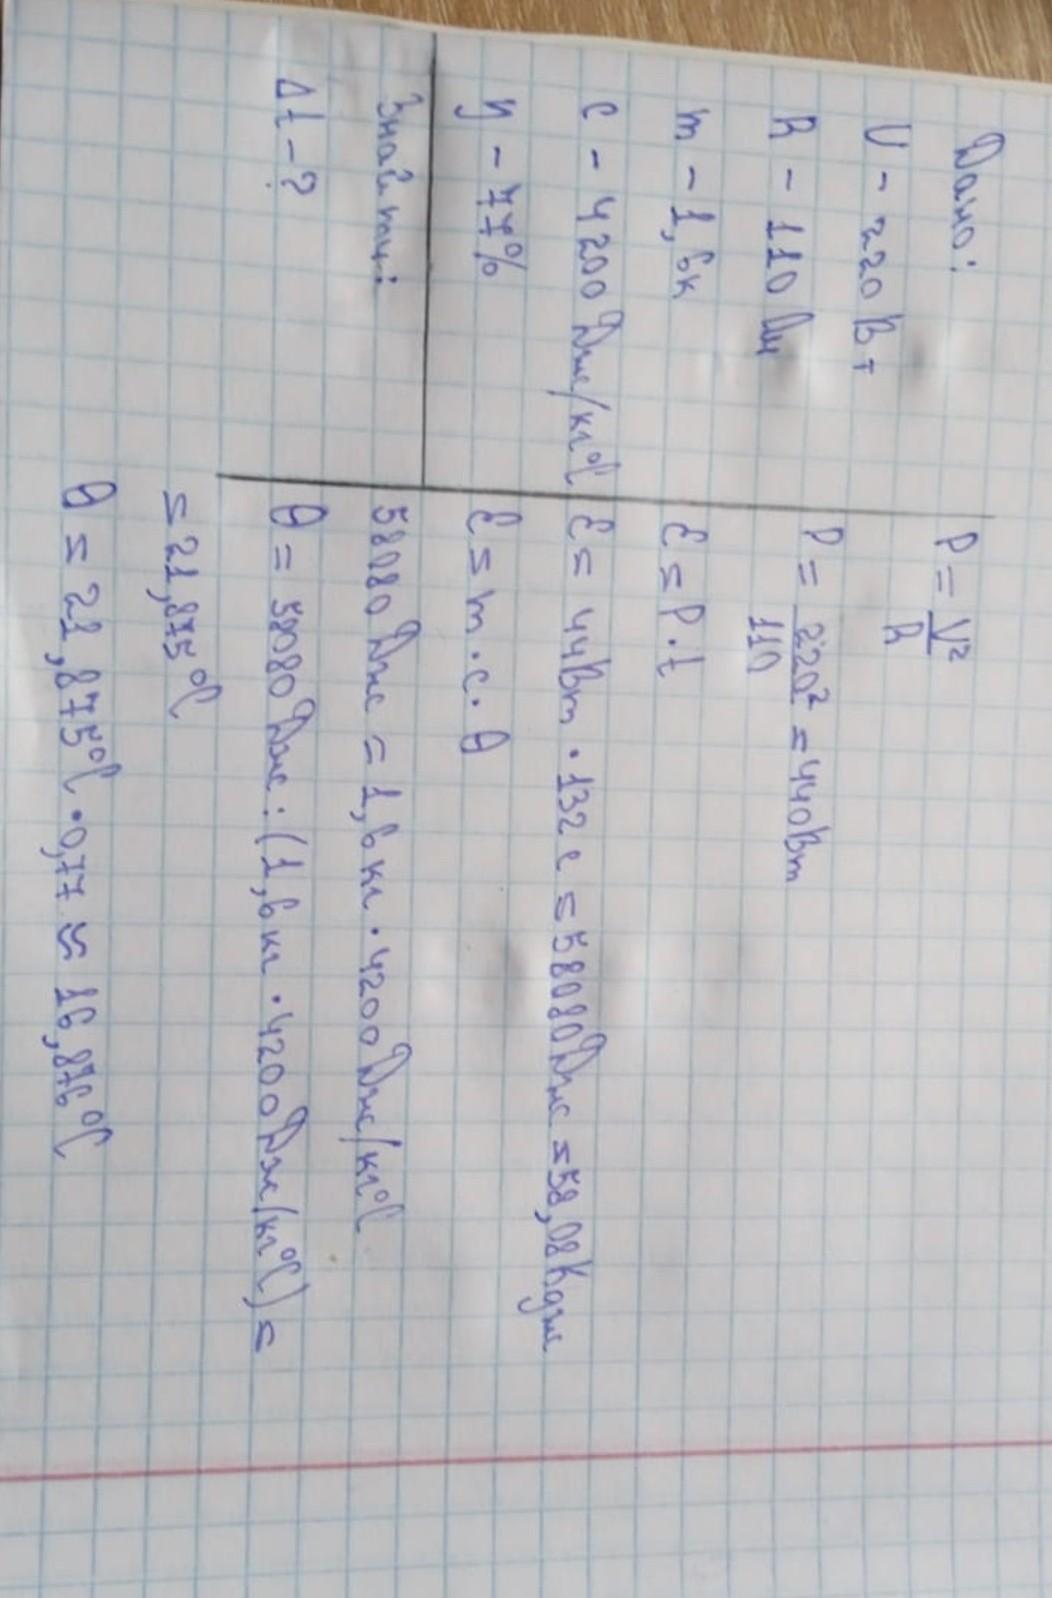 Дано:
U - 220 Вт
R - 110 Ом
m - 1,6к
c - 4200 Дж/кг°C
η - 77%
Знайти:
Δt - ?
P = U²/R
P = 220²/110 = 440Вт
E = P · t
E = 44Вт · 132 с = 58080Дж = 58,08Кдж
E = m · c · θ
58080Дж = 1,6кг · 4200Дж/кг°C
θ = 58080Дж : (1,6кг · 4200Дж/кг°C) =
= 21,875°C
θ = 21,875°C · 0,77 ≈ 16,876°C